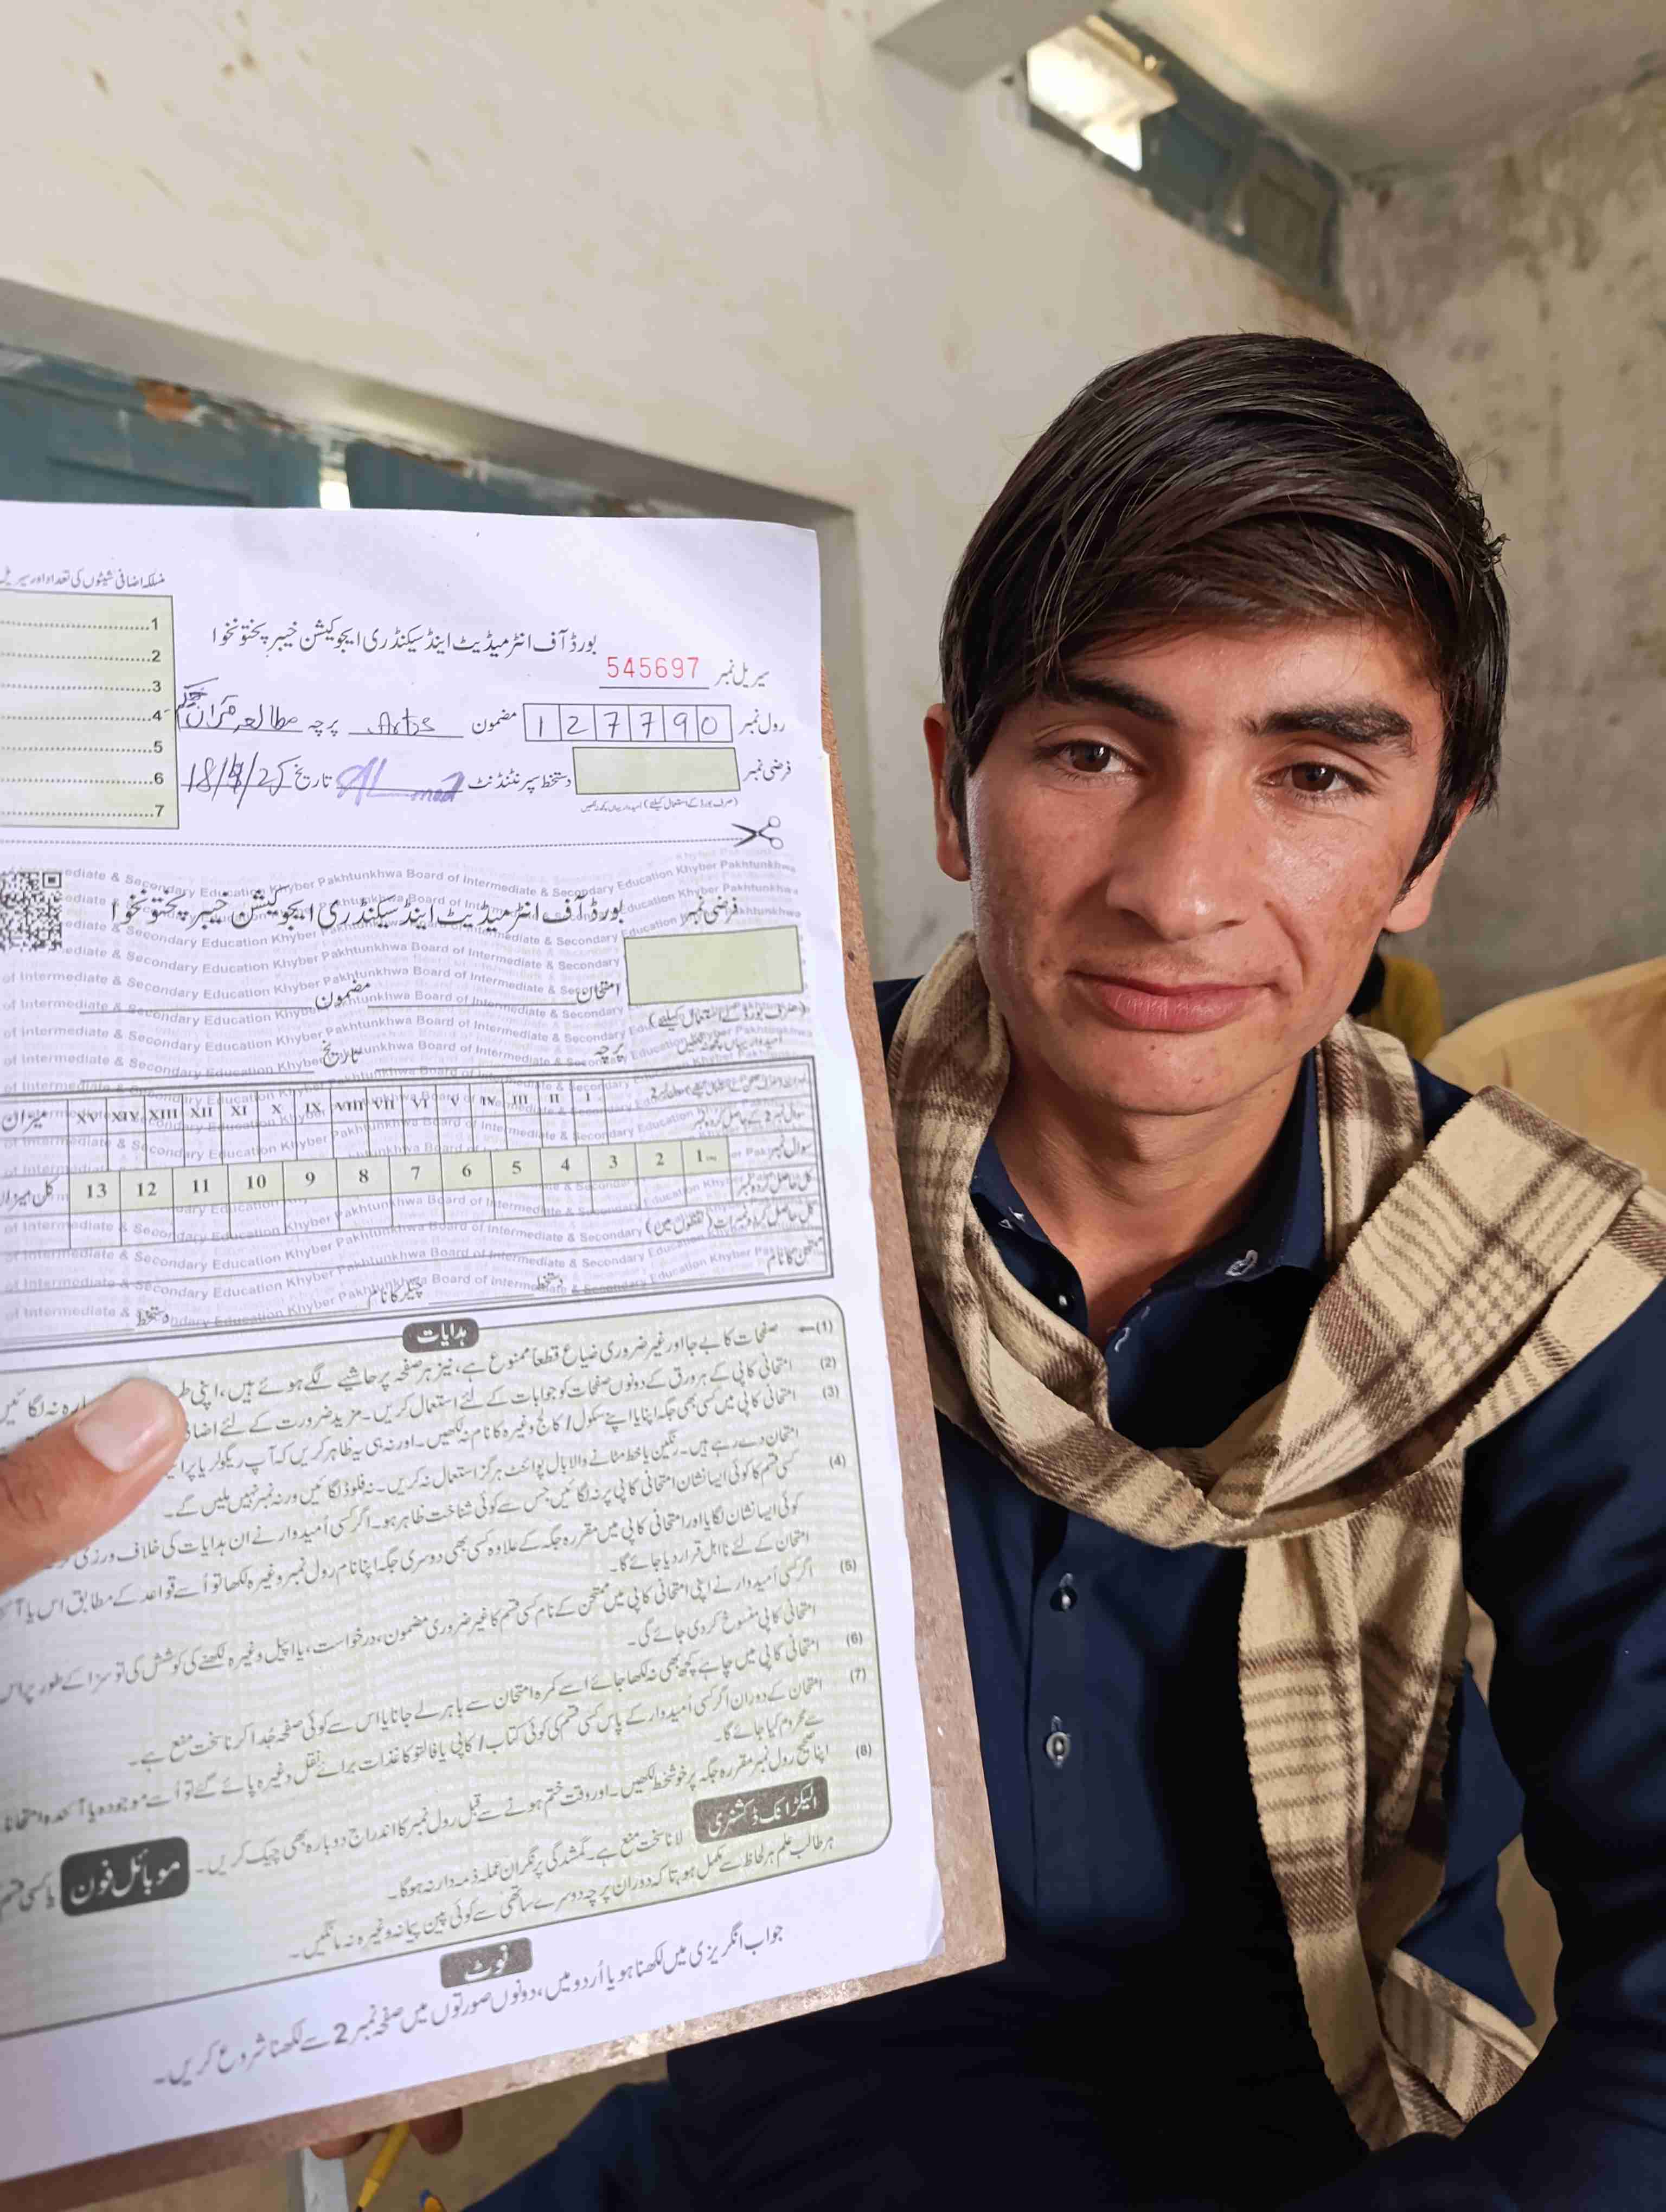 منسلکہ اضافی شیٹوں کی تعداد اور سیریل
1
2
3
4
5
6
7
بورڈ آف انٹرمیڈیٹ اینڈ سیکنڈری ایجوکیشن خیبر پختونخوا
سیریل نمبر 545697
رول نمبر 127790 مضمون Arts پرچہ مطالعہ قرآن حکیم
فرضی نمبر دستخط سپرنٹنڈنٹ تاریخ 18/4/25
(صرف بورڈ کے استعمال کیلئے)
بورڈ آف انٹرمیڈیٹ اینڈ سیکنڈری ایجوکیشن خیبر پختونخوا
Khyber Pakhtunkhwa Board of Intermediate & Secondary Education
فرضی نمبر
امتحان مضمون
(صرف بورڈ کے استعمال کیلئے)
پرچہ تاریخ
I II III IV V VI VII VIII IX X XI XII XIII XIV XV میزان
سوال نمبر 1 2 3 4 5 6 7 8 9 10 11 12 13 کل میزان
کل حاصل کردہ نمبر
کل حاصل کردہ نمبرات (لفظوں میں)
ممتحن کا نام دستخط چیکر کا نام دستخط
ہدایات
(1) صفحات کا بے جا اور غیر ضروری ضیاع قطعاً ممنوع ہے، نیز ہر صفحہ پر حاشیے لگے ہوئے ہیں، اپنی
(2) امتحانی کاپی کے ہر ورق کے دونوں صفحات کو جوابات کے لئے استعمال کریں۔ مزید ضرورت کے لئے
(3) امتحانی کاپی میں کسی بھی جگہ اپنا یا اپنے سکول / کالج وغیرہ کا نام نہ لکھیں۔ اور نہ ہی یہ ظاہر کریں کہ آپ ریگولر یا
امتحان دے رہے ہیں۔ رنگین یا خط مٹانے والا بال پوائنٹ ہرگز استعمال نہ کریں۔ نہ فلوڈ لگائیں ورنہ نمبر نہیں ملیں گے۔
(4) کسی قسم کا کوئی ایسا نشان امتحانی کاپی پر نہ لگائیں جس سے کوئی شناخت ظاہر ہو۔ اگر کسی اُمیدوار نے ان ہدایات کی خلاف ورزی
کوئی ایسا نشان لگایا اور امتحانی کاپی میں مقررہ جگہ کے علاوہ کسی بھی دوسری جگہ اپنا نام رول نمبر وغیرہ لکھا تو اُسے قواعد کے مطابق اس یا
امتحان کے لئے نااہل قرار دیا جائے گا۔
(5) اگر کسی اُمیدوار نے اپنی امتحانی کاپی میں ممتحن کے نام کسی قسم کا غیر ضروری مضمون، درخواست، یا اپیل وغیرہ لکھنے کی کوشش کی تو سزا کے طور پر اس
امتحانی کاپی منسوخ کردی جائے گی۔
(6) امتحانی کاپی میں چاہے کچھ بھی نہ لکھا جائے اسے کمرہ امتحان سے باہر لے جانا یا اس سے کوئی صفحہ جُدا کرنا سخت منع ہے۔
(7) امتحان کے دوران اگر کسی اُمیدوار کے پاس کسی قسم کی کوئی کتاب / کاپی یا فالتو کاغذات برائے نقل وغیرہ پائے گئے تو اُسے موجودہ یا آئندہ
سے محروم کیا جائے گا۔
(8) اپنا صحیح رول نمبر مقررہ جگہ پر خوشخط لکھیں۔ اور وقت ختم ہونے سے قبل رول نمبر کا اندراج دوبارہ بھی چیک کریں۔ موبائل فون یا کسی
الیکٹرانک ڈکشنری لانا سخت منع ہے۔ گمشدگی پر نگران عملہ ذمہ دار نہ ہوگا۔
ہر طالب علم ہر لحاظ سے مکمل ہو، تاکہ دوران پرچہ دوسرے ساتھی سے کوئی پین پیمانہ وغیرہ نہ مانگیں۔
نوٹ
جواب انگریزی میں لکھنا ہو یا اُردو میں، دونوں صورتوں میں صفحہ نمبر 2 سے لکھنا شروع کریں۔